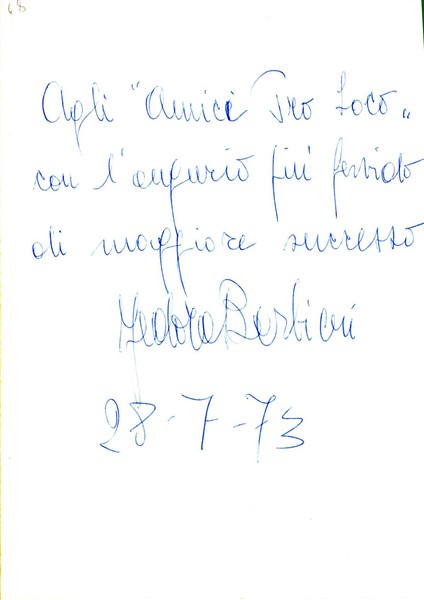 68
Agli "Amici Pro Loco"
con l'augurio più fervido
di maggiore successo
Fedora Barbieri
28-7-73